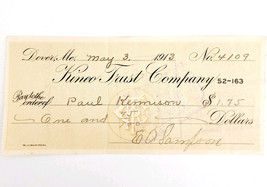 Dover, Me. May 3, 1913 No. 4109
Kineo Trust Company 52-163
Pay to the order of Paul Kennison $1.75
One and Dollars
E D Sampson